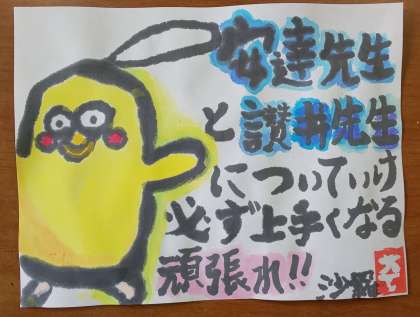 安達先生
と讃井先生
についていけ
必ず上手くなる
頑張れ!!